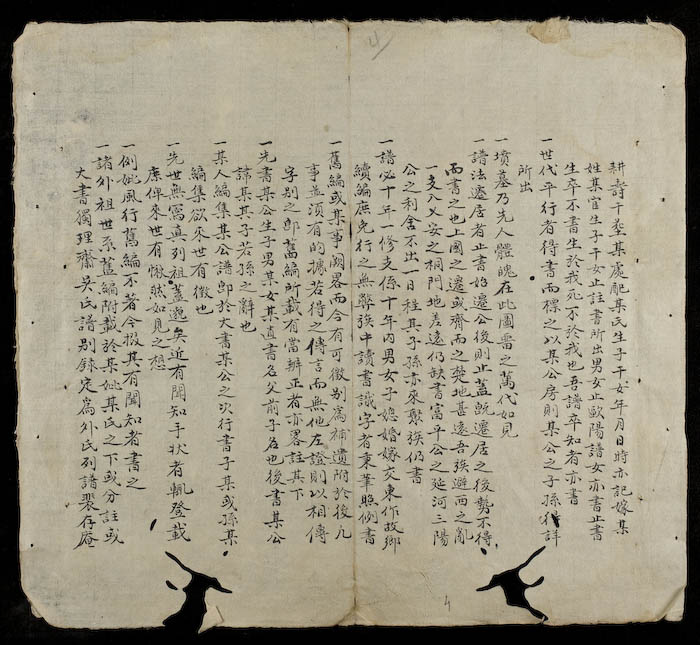 耕壽干塟某處配某氏生子干女年月日時亦記嫁某
姓某官生子干女止註書所出男女止歐陽譜女亦書止書
生卒不書生於我死不於我也吾譜卒知者亦書
所出
一世代平行者得書而標之以某公房則某公之子孫得詳
一墳墓乃先人體魄在此圖畱之萬代如見
一譜法遷居者止書始遷公後則止蓋旣遷居之後勢不得
而書之也上國之遷或齊而之楚地甚遠吾族避西之亂
一支入乂安之桐門地差遠仍缺書富平公之延河三陽
公之利舍不出一日程其子孫亦來聚族仍書
一譜必十年一修支係十年內男女子媳婚嫁交東作故鄉
續編庶先行之無弊族中讀書識字者秉筆照例書
一舊編或某事闕畧而今有可徵别爲補遺附於後凢
事並須有的據若得之傳言而無他左證則以相傳
字别之卽舊編所載有當辨正者亦畧註其下
一先書某公生子男某女某直書名父前子名也後書某公
諱某其子若孫之辭也
一某人編集某公譜卽於大書某公之次行書子某或孫某
編集欲來世有徵也
一先世無寫真列祖蓋邈矣近有聞知手狀者輒登載
庶俾來世有愀然如見之想
一例妣風行舊編不著今掇其有聞知者書之
一諸外祖世系舊編附載於某妣某氏之下或分註或
大書獨理齋吳氏譜别錄定爲外氏列譜裴存庵
4